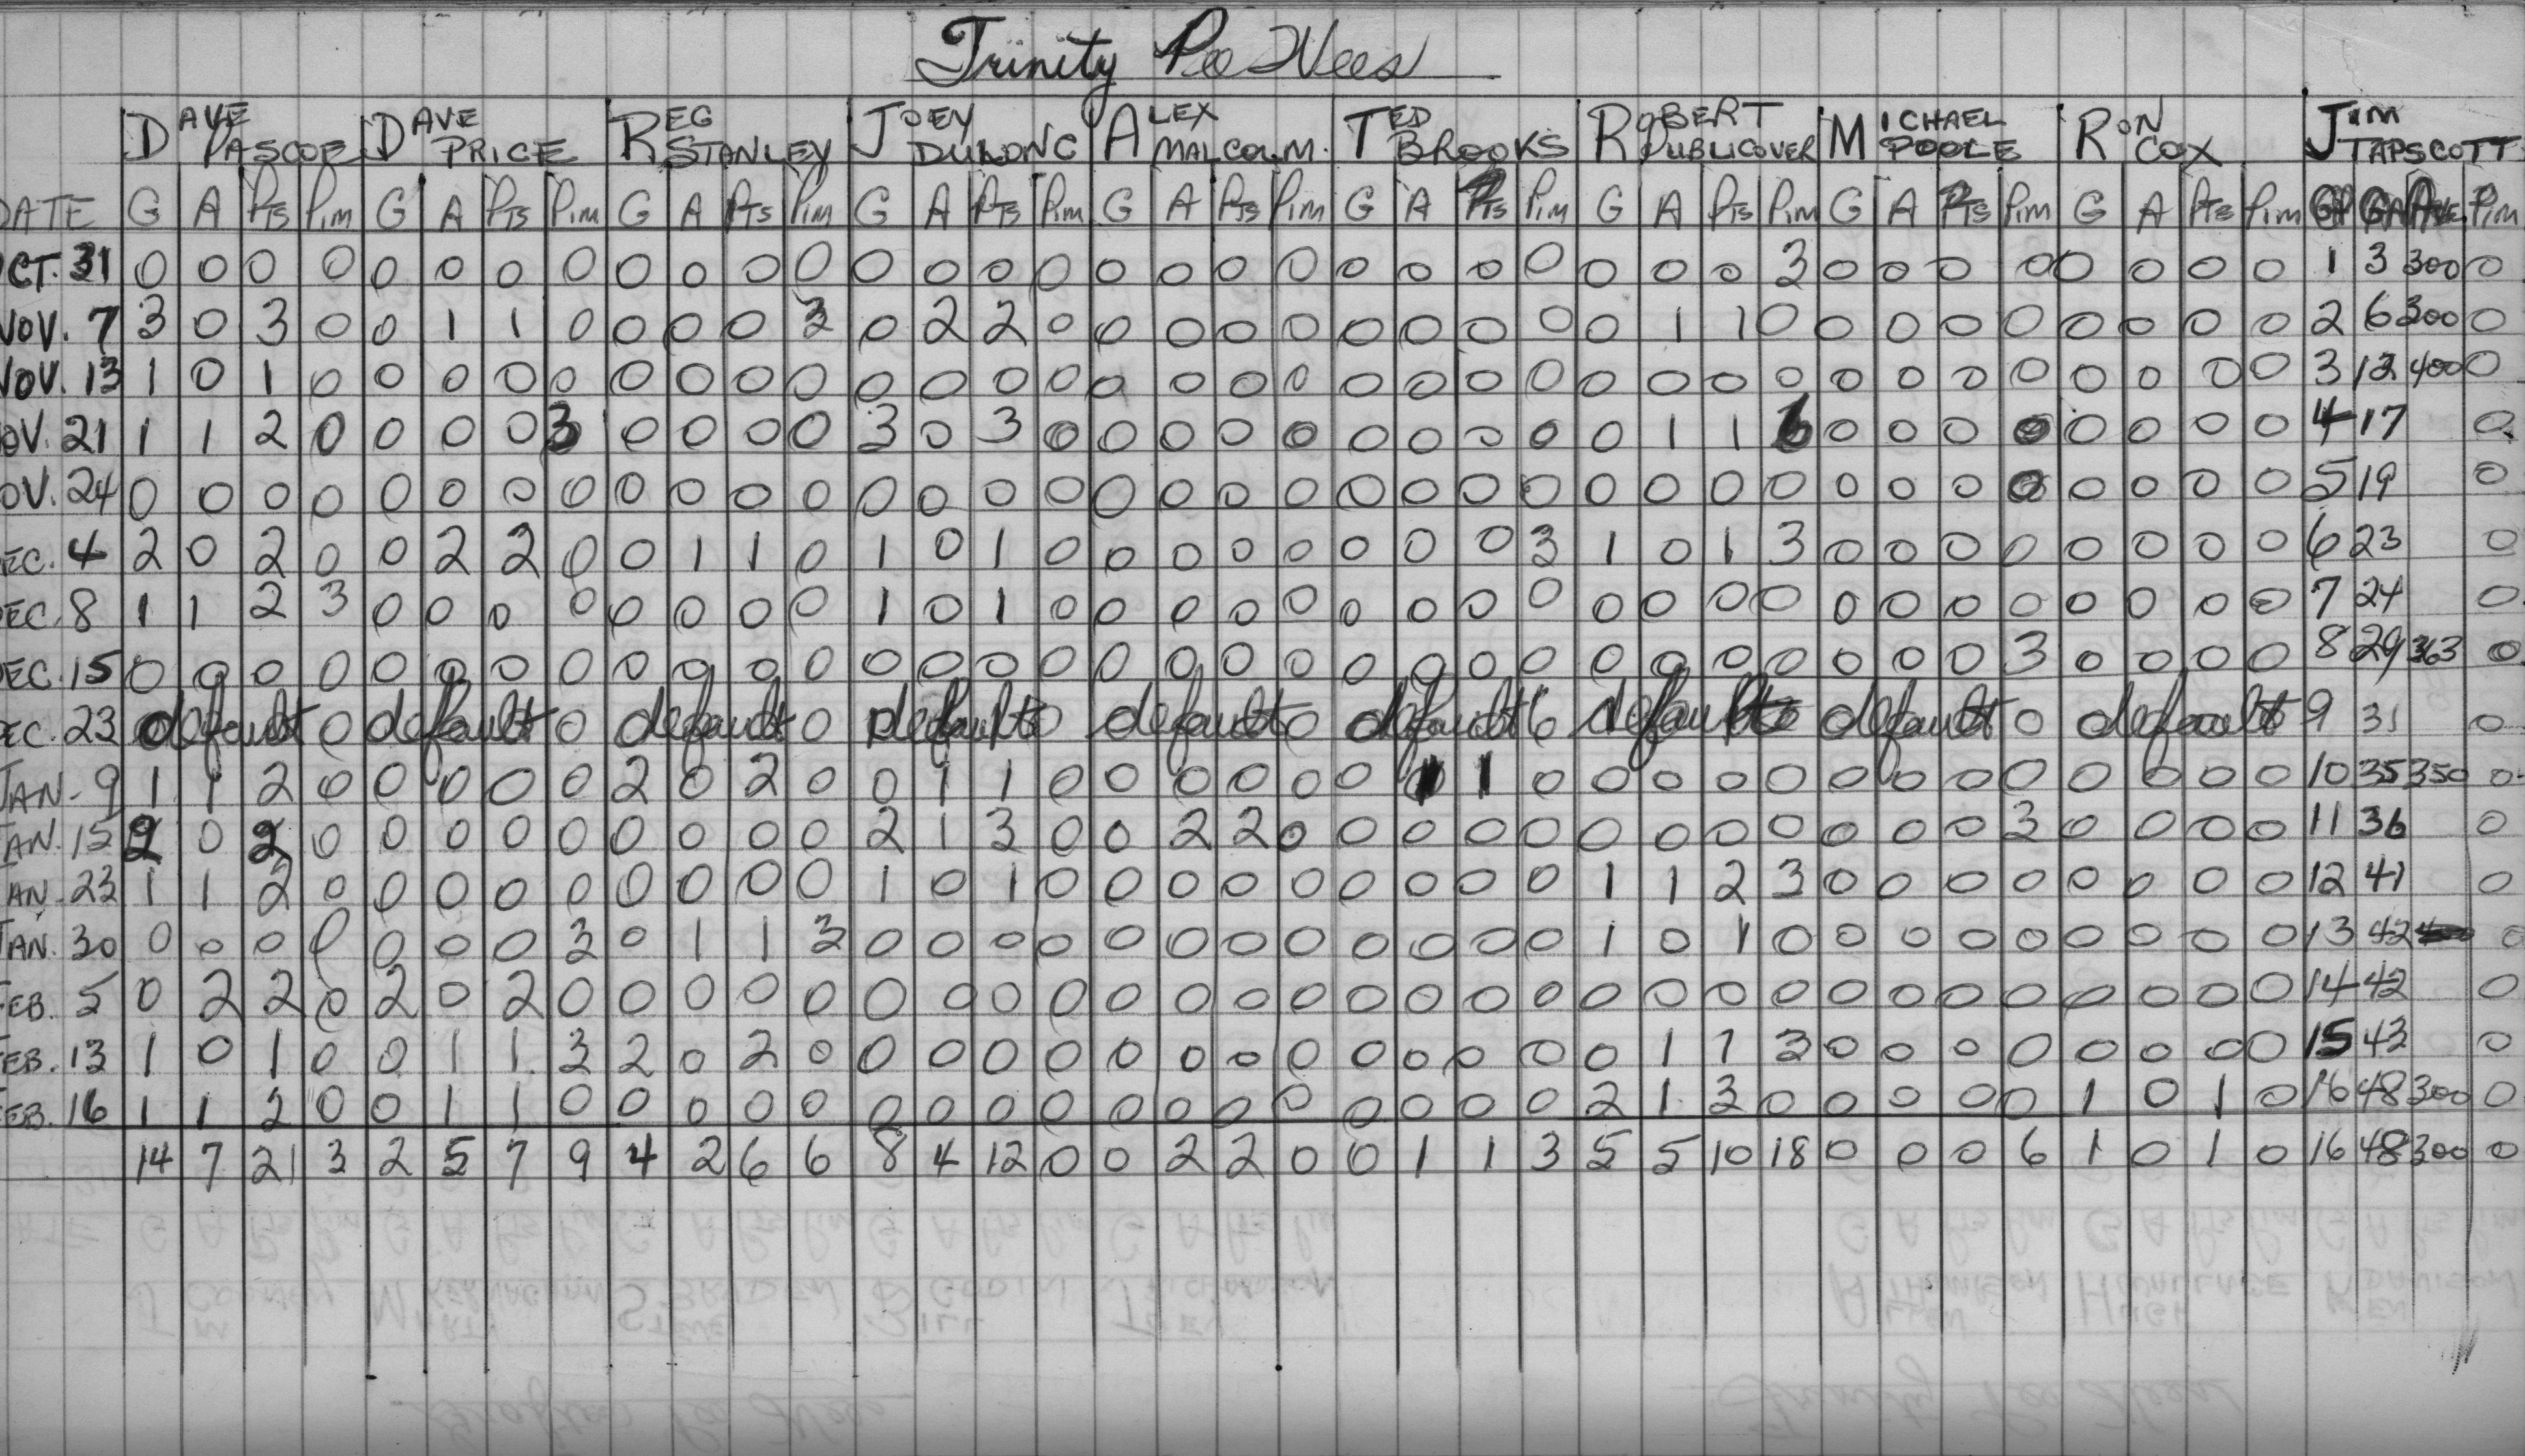 Trinity Pee Wees
DAVE PASCOE DAVE PRICE REG STANLEY JOEY DULONC ALEX MALCOLM. TED BROOKS ROBERT PUBLICOVER MICHAEL POOLE RON COX JIM TAPSCOTT
DATE G A Pts Pim G A Pts Pim G A Pts Pim G A Pts Pim G A Pts Pim G A Pts Pim G A Pts Pim G A Pts Pim G A Pts Pim GP GA Ave. Pim
OCT. 31 0 0 0 0 0 0 0 0 0 0 0 0 0 0 0 0 0 0 0 0 0 0 0 0 0 0 0 3 0 0 0 0 0 0 0 0 1 3 300 0
NOV. 7 3 0 3 0 0 1 1 0 0 0 0 3 0 2 2 0 0 0 0 0 0 0 0 0 0 1 1 0 0 0 0 0 0 0 0 0 2 6 300 0
NOV. 13 1 0 1 0 0 0 0 0 0 0 0 0 0 0 0 0 0 0 0 0 0 0 0 0 0 0 0 0 0 0 0 0 0 0 0 0 3 12 400 0
NOV. 21 1 1 2 0 0 0 0 3 0 0 0 0 3 0 3 0 0 0 0 0 0 0 0 0 0 1 1 6 0 0 0 0 0 0 0 0 4 17 0
NOV. 24 0 0 0 0 0 0 0 0 0 0 0 0 0 0 0 0 0 0 0 0 0 0 0 0 0 0 0 0 0 0 0 0 0 0 0 0 5 19 0
DEC. 4 2 0 2 0 0 2 2 0 0 1 1 0 1 0 1 0 0 0 0 0 0 0 0 3 1 0 1 3 0 0 0 0 0 0 0 0 6 23 0
DEC. 8 1 1 2 3 0 0 0 0 0 0 0 0 1 0 1 0 0 0 0 0 0 0 0 0 0 0 0 0 0 0 0 0 0 0 0 0 7 24 0
DEC. 15 0 0 0 0 0 0 0 0 0 0 0 0 0 0 0 0 0 0 0 0 0 0 0 0 0 0 0 0 0 0 0 3 0 0 0 0 8 29 363 0
DEC. 23 default 0 default 0 default 0 default 0 default 0 default 0 default 0 default 0 default 9 31 0
JAN. 9 1 1 2 0 0 0 0 0 2 0 2 0 0 1 1 0 0 0 0 0 0 1 1 0 0 0 0 0 0 0 0 0 0 0 0 0 10 35 350 0
JAN. 15 2 0 2 0 0 0 0 0 0 0 0 0 2 1 3 0 0 2 2 0 0 0 0 0 0 0 0 0 0 0 0 3 0 0 0 0 11 36 0
JAN. 23 1 1 2 0 0 0 0 0 0 0 0 0 1 0 1 0 0 0 0 0 0 0 0 0 1 1 2 3 0 0 0 0 0 0 0 0 12 41 0
JAN. 30 0 0 0 0 0 0 0 3 0 1 1 3 0 0 0 0 0 0 0 0 0 0 0 0 1 0 1 0 0 0 0 0 0 0 0 0 13 42 0
FEB. 5 0 2 2 0 2 0 2 0 0 0 0 0 0 0 0 0 0 0 0 0 0 0 0 0 0 0 0 0 0 0 0 0 0 0 0 0 14 42 0
FEB. 13 1 0 1 0 0 1 1 3 2 0 2 0 0 0 0 0 0 0 0 0 0 0 0 0 0 1 1 3 0 0 0 0 0 0 0 0 15 43 0
FEB. 16 1 1 2 0 0 1 1 0 0 0 0 0 0 0 0 0 0 0 0 0 0 0 0 0 2 1 3 0 0 0 0 0 1 0 1 0 16 48 300 0
14 7 21 3 2 5 7 9 4 2 6 6 8 4 12 0 0 2 2 0 0 1 1 3 5 5 10 18 0 0 0 6 1 0 1 0 16 48 300 0